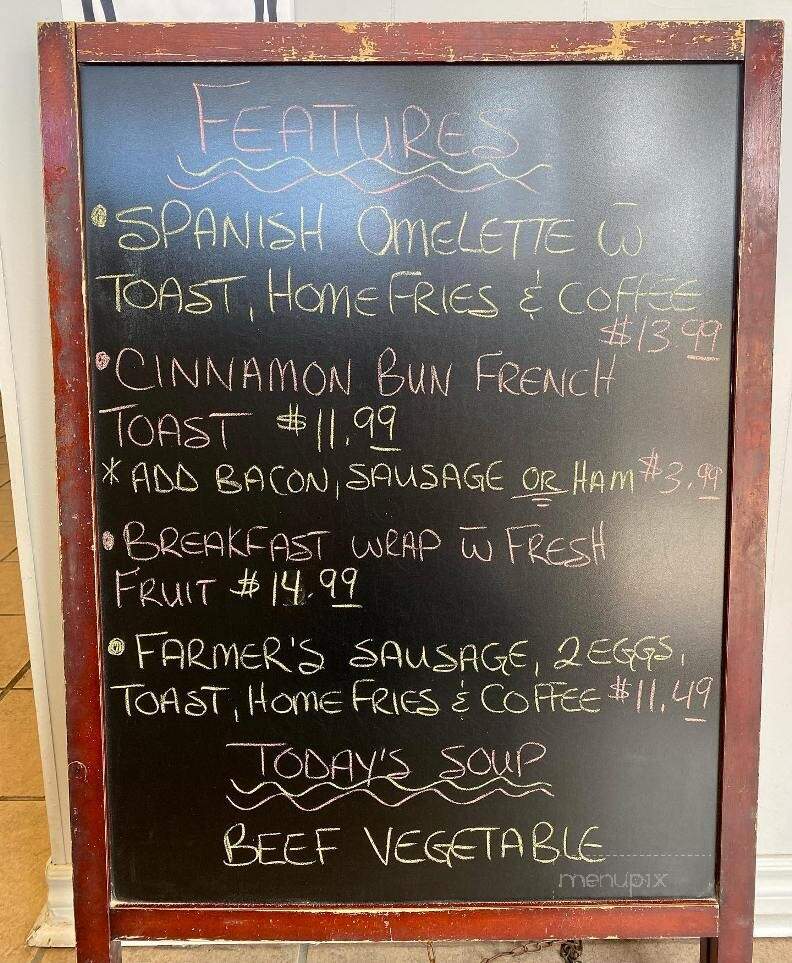 FEATURES
• SPANISH OMELETTE w̄
TOAST, HOME FRIES & COFFEE
$13.99
• CINNAMON BUN FRENCH
TOAST $11.99
* ADD BACON, SAUSAGE OR HAM $3.99
• BREAKFAST WRAP w̄ FRESH
FRUIT $14.99
• FARMER'S SAUSAGE, 2 EGGS,
TOAST, HOME FRIES & COFFEE $11.49
TODAY'S SOUP
BEEF VEGETABLE
menupix